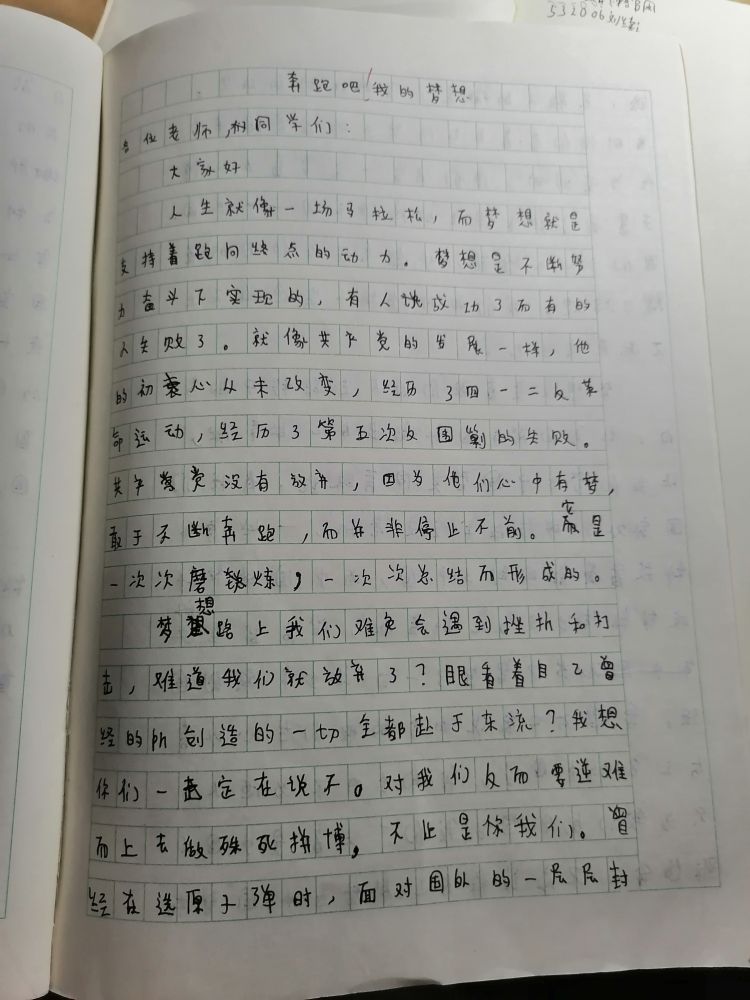 532806
奔跑吧我的梦想
各位老师,和同学们:
大家好
人生就像一场马拉松,而梦想就是
支持着跑向终点的动力。梦想是不断努
力奋斗下实现的,有人说成功了而有的
人失败了。就像共产党的发展一样,他
的初衷心从未改变,经历了四一二反革
命运动,经历了第五次反围剿的失败。
共产党没有放弃,因为他们心中有梦,
敢于不断奔跑,而并非停止不前。它是
一次次磨练,一次次总结而形成的。
梦想路上我们难免会遇到挫折和打
击,难道我们就放弃了?眼看着自己曾
经的所创造的一切全都赴于东流?我想
你们一定在说不。对我们反而要逆难
而上去做殊死拼博,不止是你我们。曾
经在造原子弹时,面对国外的一层层封